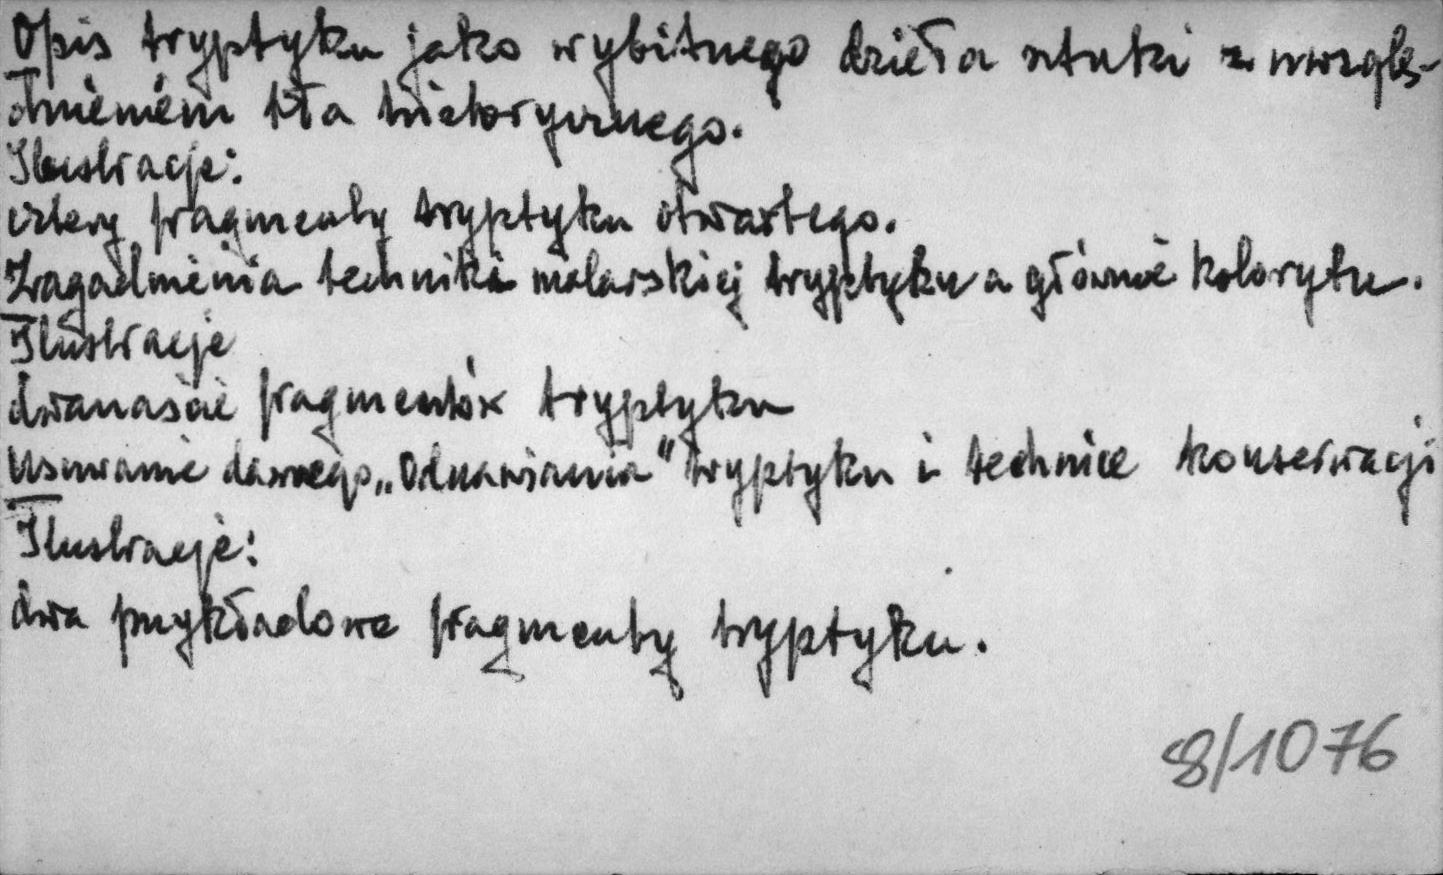 Opis tryptyku jako wybitnego dzieła sztuki z uwzglę-
dnieniem tła historycznego.
Ilustracje:
cztery fragmenty tryptyku otwartego.
Zagadnienia techniki malarskiej tryptyku a głównie kolorytu.
Ilustracje
dwanaście fragmentów tryptyku
Usuwanie dawnego „odnawiania" tryptyku i technice konserwacji
Ilustracje:
dwa przykładowe fragmenty tryptyku.
8/1076